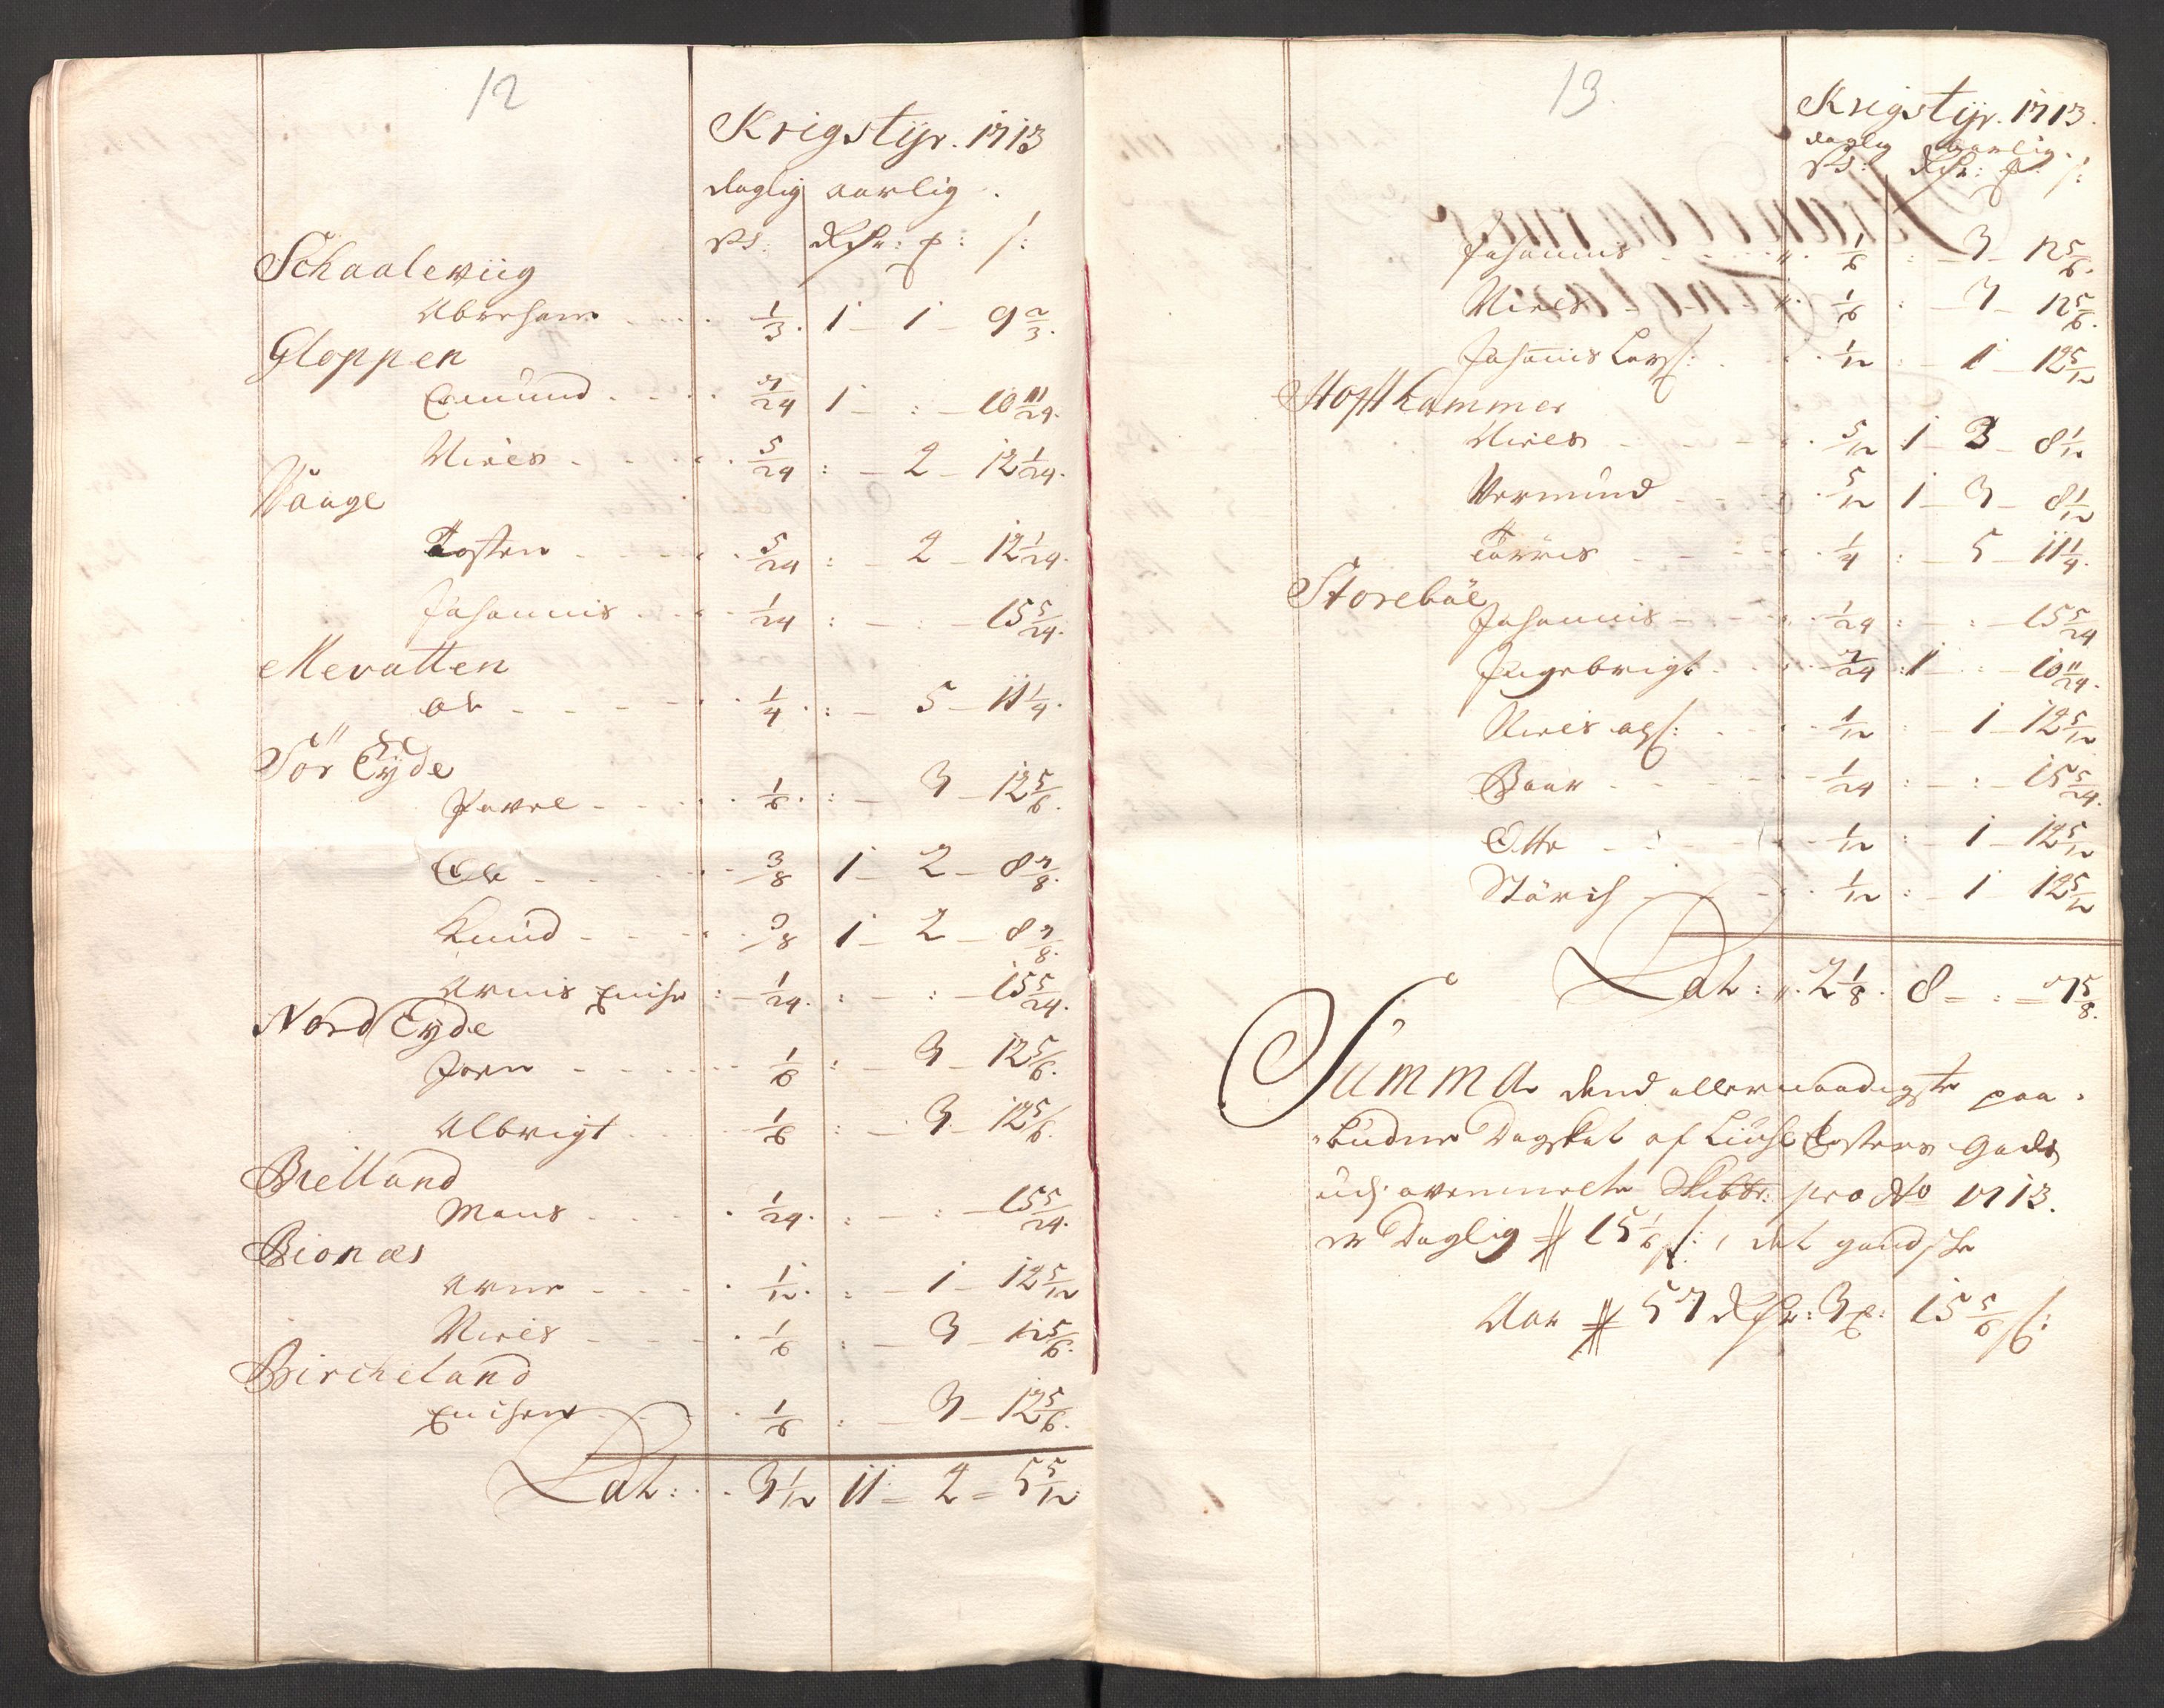 12
Krigstÿr. 1713
daglig aarlig.
ß: Rdr: ꝑ: ß:
Schaaleviig
Abraham 1/3. 1 - 1 - 9 2/3.
Gloppen
Emund 7/24 1 - : - 10 11/24.
Niels 5/24 : - 2 - 12 1/24.
Vaage
Tosten 5/24 : - 2 - 12 1/24.
Johannis 1/24 : - : - 15 5/24.
Mevatten
Ol 1/4 : - 5 - 11 1/4.
Sör Eÿde
Powel 1/6 : - 3 - 12 5/6.
Ole 3/8 1 - 2 - 8 7/8.
Knud 3/8 1 - 2 - 8 7/8.
Arnis Enche 1/24. : - : - 15 5/24.
Nord Eÿde
Joen 1/6 : - 3 - 12 5/6.
Albrigt 1/6 : - 3 - 12 5/6.
Brelland
Mons 1/24. : - : - 15 5/24.
Bionæs
Arne 1/12. : - 1 - 12 5/12
Niels 1/6 : - 3 - 12 5/6.
Bircheland
Enchen 1/6 : - 3 - 12 5/6.
Lat: 3 1/12 11 - 2 - 5 5/12
13.
Krigstÿr. 1713.
daglig aarlig.
ß: Rdr: ꝑ: ß:
Johannis 1/6 : - 3 - 12 5/6.
Niels 1/6 : - 3 - 12 5/6.
Johannis Lars: 1/12 : - 1 - 12 5/12
Hofftkammer
Niels 5/12 1 - 3 - 8 1/12
Vermund 5/12 1 - 3 - 8 1/12
Torris 1/4 : - 5 - 11 1/4.
Storebøe
Johannis 1/24 : - : - 15 5/24
Ingebrigt 7/24 1 - : - 10 11/24.
Niels Ols: 1/12 : - 1 - 12 5/12
Baar 1/24 : - : - 15 5/24.
Otte 1/12 : - 1 - 12 5/12
Störch 1/12 : - 1 - 12 5/12
Lat: 2 1/8. 8 - : - 7 5/8.
Summa dend allernaadigste paa-
budne Dagskat af Liuse Closters Gods
udj ovenmelte Skibbr: pro Ao 1713.
er Daglig # 15 1/6 ß:, det gandsche
Aar # 57 Rdr: 3 ꝑ: 15 5/6 ß: